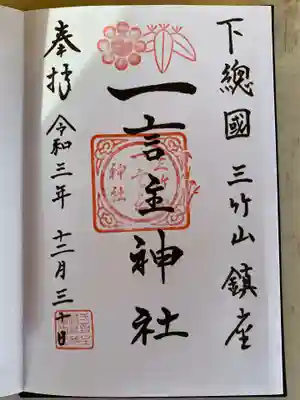 下總國 三竹山 鎮座
一言主神社
奉拝 令和三年 十二月 三十日